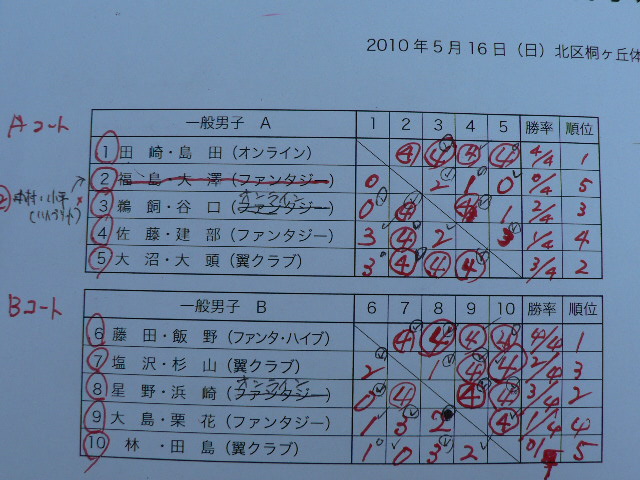 2010年5月16日（日）北区桐ヶ丘体
Aコート
一般男子 A 1 2 3 4 5 勝率 順位
1 田 崎・島 田（オンライン） ④ ④ ④ ④ 4/4 1
2 福 島・大 澤（ファンタジー） 0 2 1 0 0/4 5
オンライン
3 鵜 飼・谷 口（ファンタジー） 0 ④ ④ 1 2/4 3
4 佐 藤・建 部（ファンタジー） 3 ④ 2 3 1/4 4
5 大 沼・大 頭（翼クラブ） 3 ④ ④ ④ 3/4 2
Bコート
一般男子 B 6 7 8 9 10 勝率 順位
6 藤 田・飯 野（ファンタ・ハイブ） ④ ④ ④ ④ 4/4 1
7 塩 沢・杉 山（翼クラブ） 2 1 ④ ④ 2/4 3
オンライン
8 星 野・浜 崎（ファンタジー） 0 ④ ④ ④ 3/4 2
9 大 島・栗 花（ファンタジー） 1 3 2 ④ 1/4 4
10 林 ・田 島（翼クラブ） 1 0 3 2 0/ 5